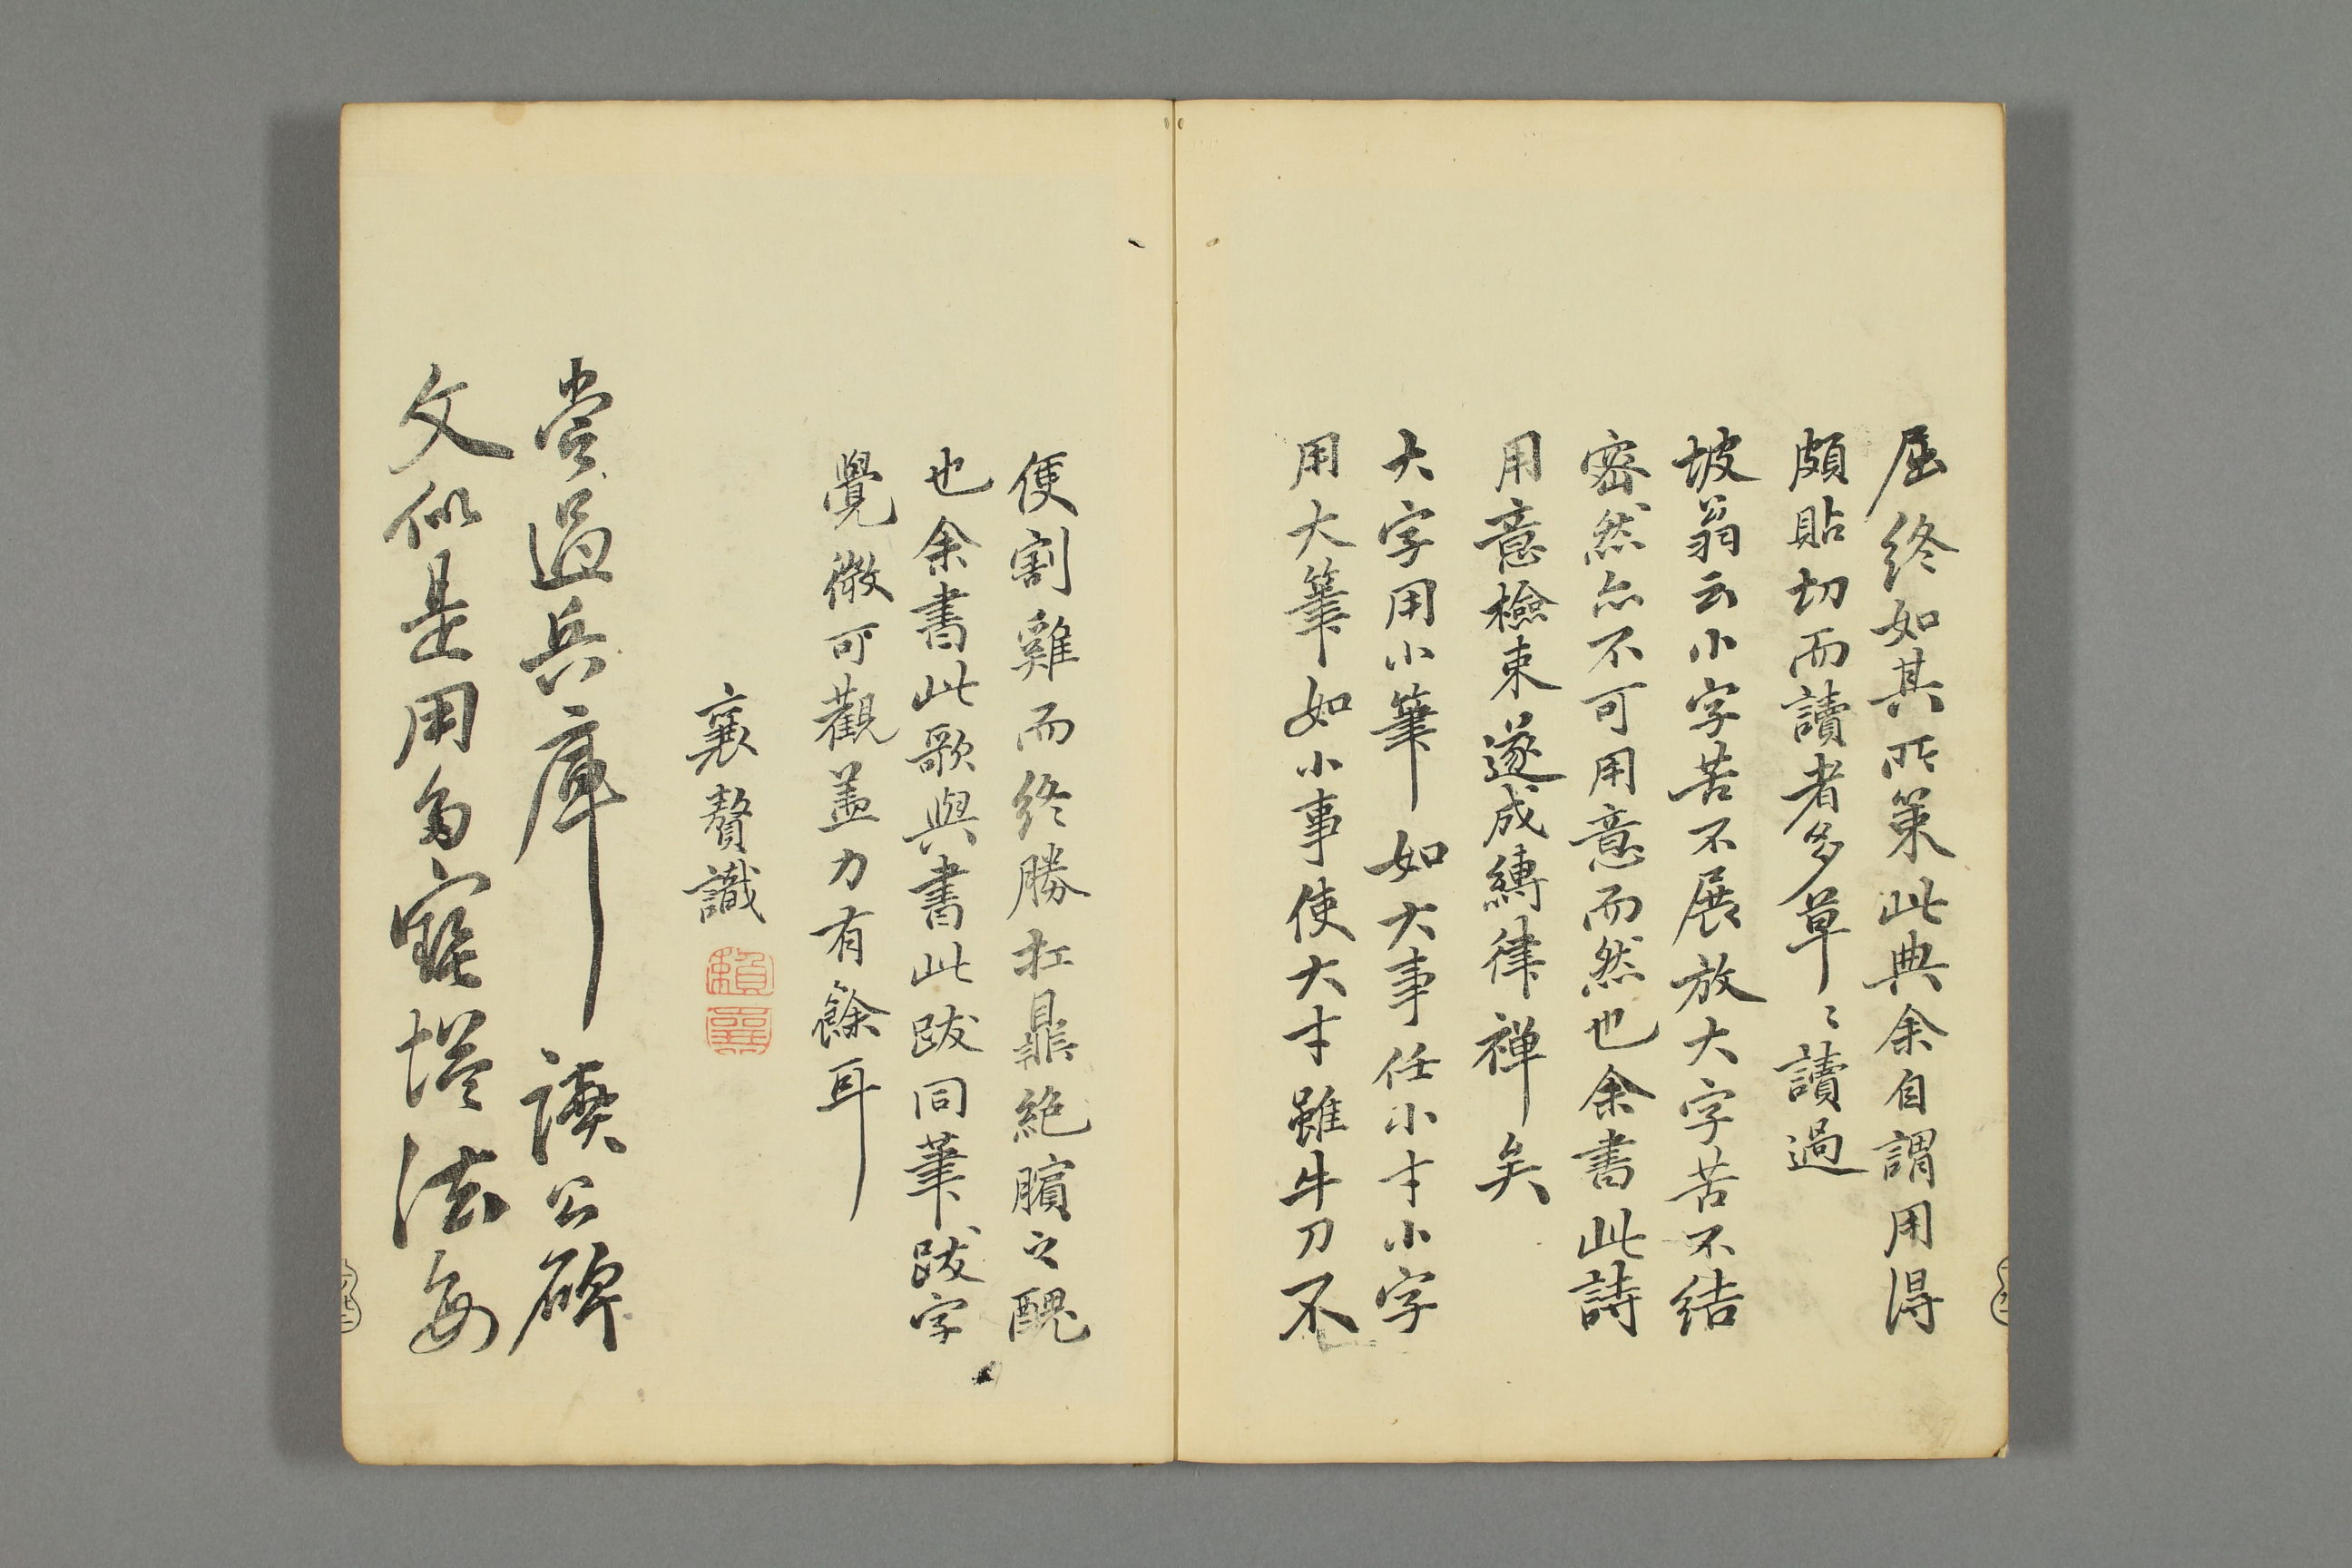 屈終如其所策此典余自謂用得
頗貼切而讀者多草〻讀過
坡翁云小字苦不展放大字苦不結
密然亦不可用意而然也余書此詩
用意檢束遂成縛律禅矣
大字用小筆如大事任小才小字
用大筆如小事使大才雖牛刀不
便割雞而終勝扛鼎絶臏之醜
也余書此歌與書此跋同筆跋字
覺微可觀蓋力有餘耳
襄贅識
賴襄
嘗過兵庫讀公碑
文似是用多寶塔法每